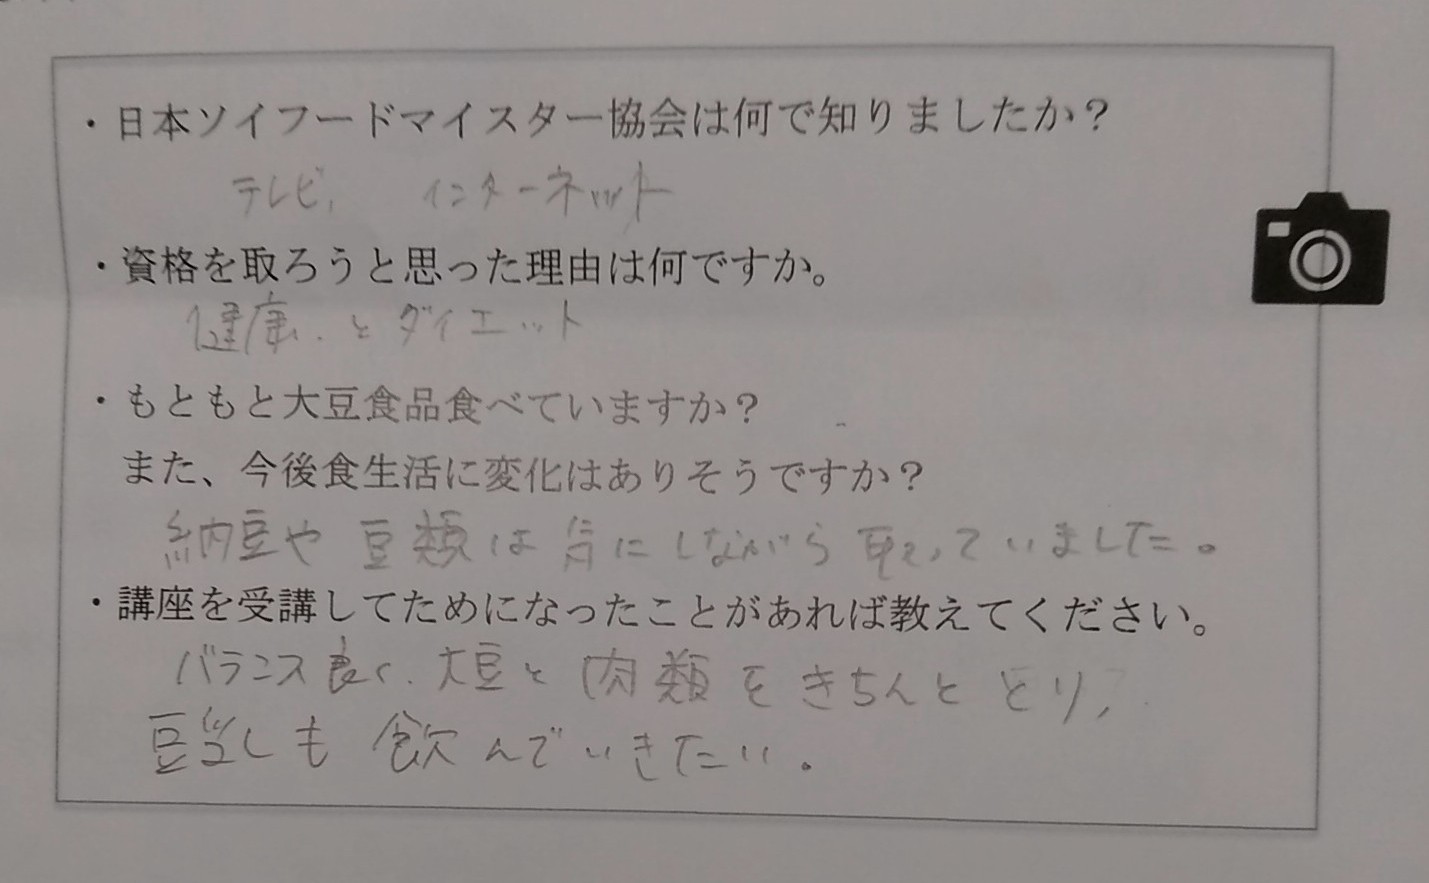 ・日本ソイフードマイスター協会は何で知りましたか？
テレビ, インターネット
・資格を取ろうと思った理由は何ですか。
健康.とダイエット
・もともと大豆食品食べていますか？
また、今後食生活に変化はありそうですか？
納豆や豆類は気にしながら取っていました。
・講座を受講してためになったことがあれば教えてください。
バランス良く.大豆と肉類をきちんととり、
豆乳も飲んでいきたい。